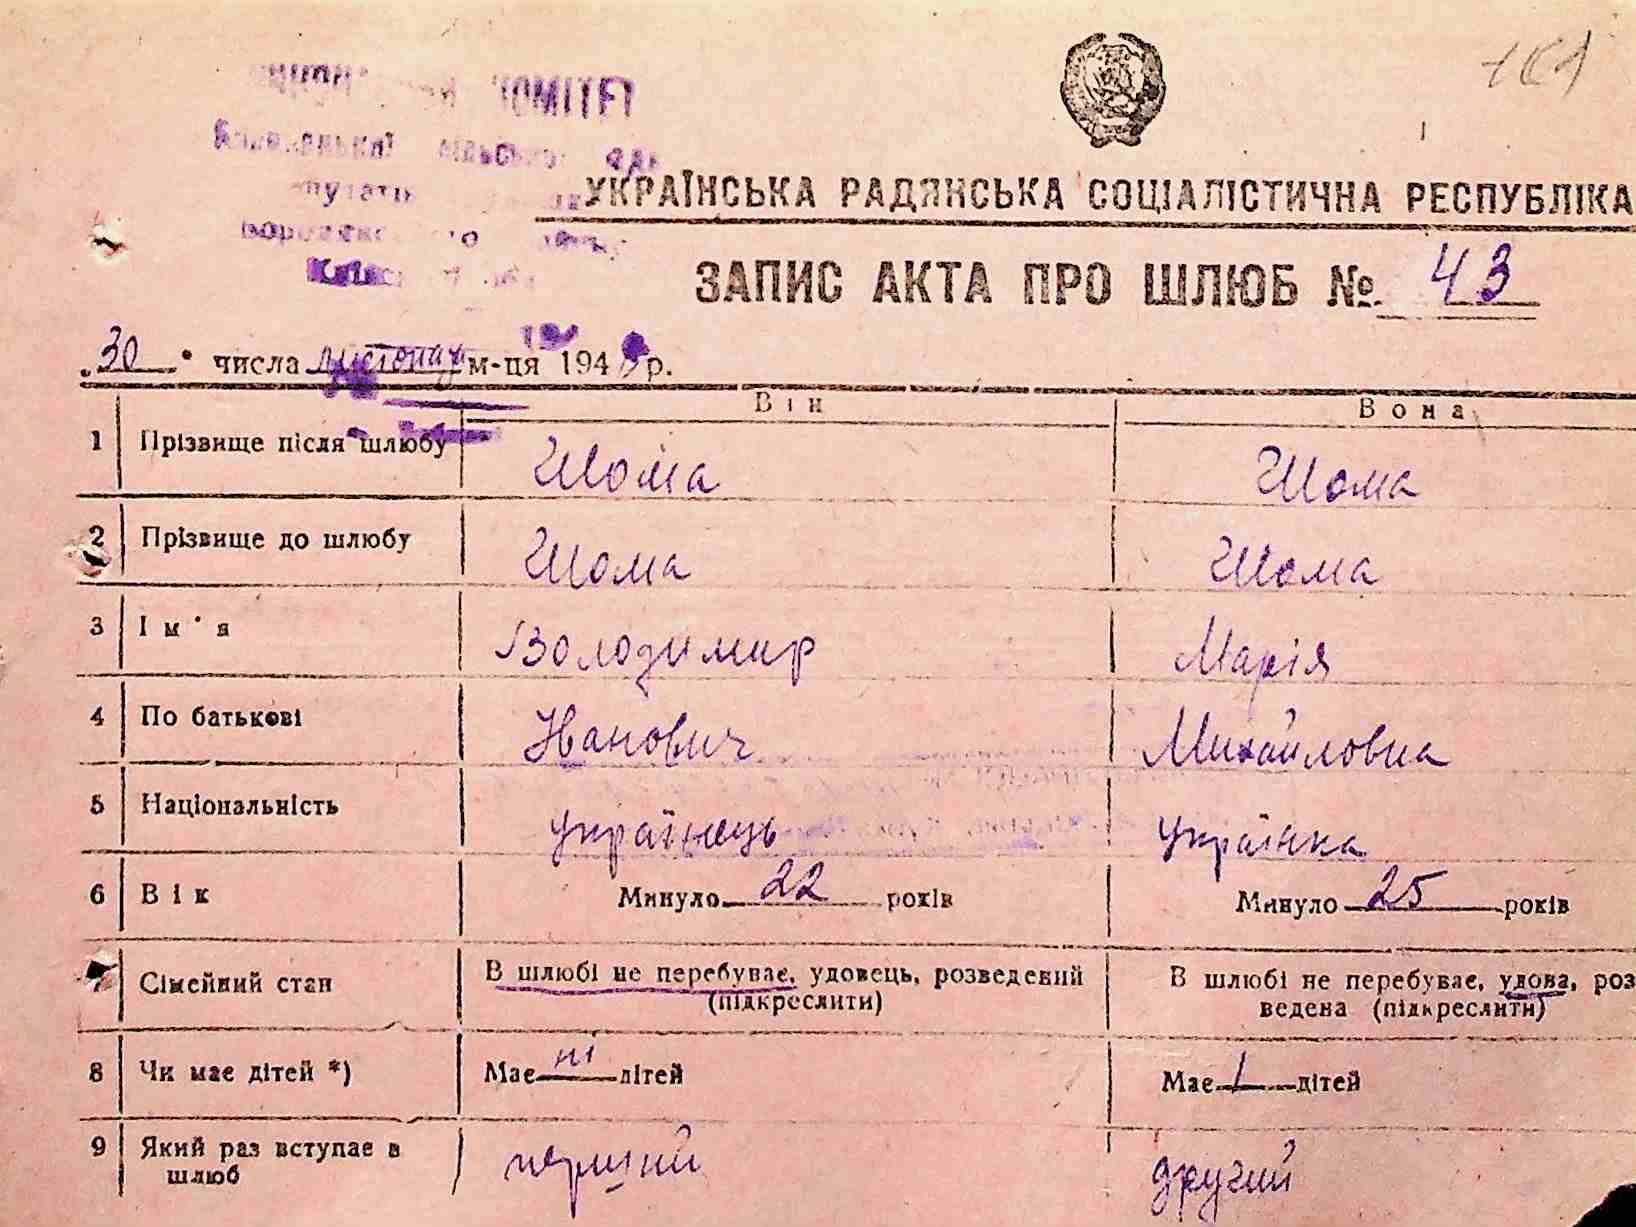 161
КОМІТЕТ
УКРАЇНСЬКА РАДЯНСЬКА СОЦІАЛІСТИЧНА РЕСПУБЛІКА
ЗАПИС АКТА ПРО ШЛЮБ № 43
„30" числа листопад м-ця 194 р.
Він Вона
1 Прізвище після шлюбу Шома Шома
2 Прізвище до шлюбу Шома Шома
3 Ім'я Володимир Марія
4 По батькові Іванович Михайловна
5 Національність українець українка
6 Вік Минуло 22 років Минуло 25 років
7 Сімейний стан В шлюбі не перебуває, удовець, розведений В шлюбі не перебуває, удова, роз
(підкреслити) ведена (підкреслити)
8 Чи має дітей *) Має ні дітей Має 1 дітей
9 Який раз вступає в перший другий
шлюб